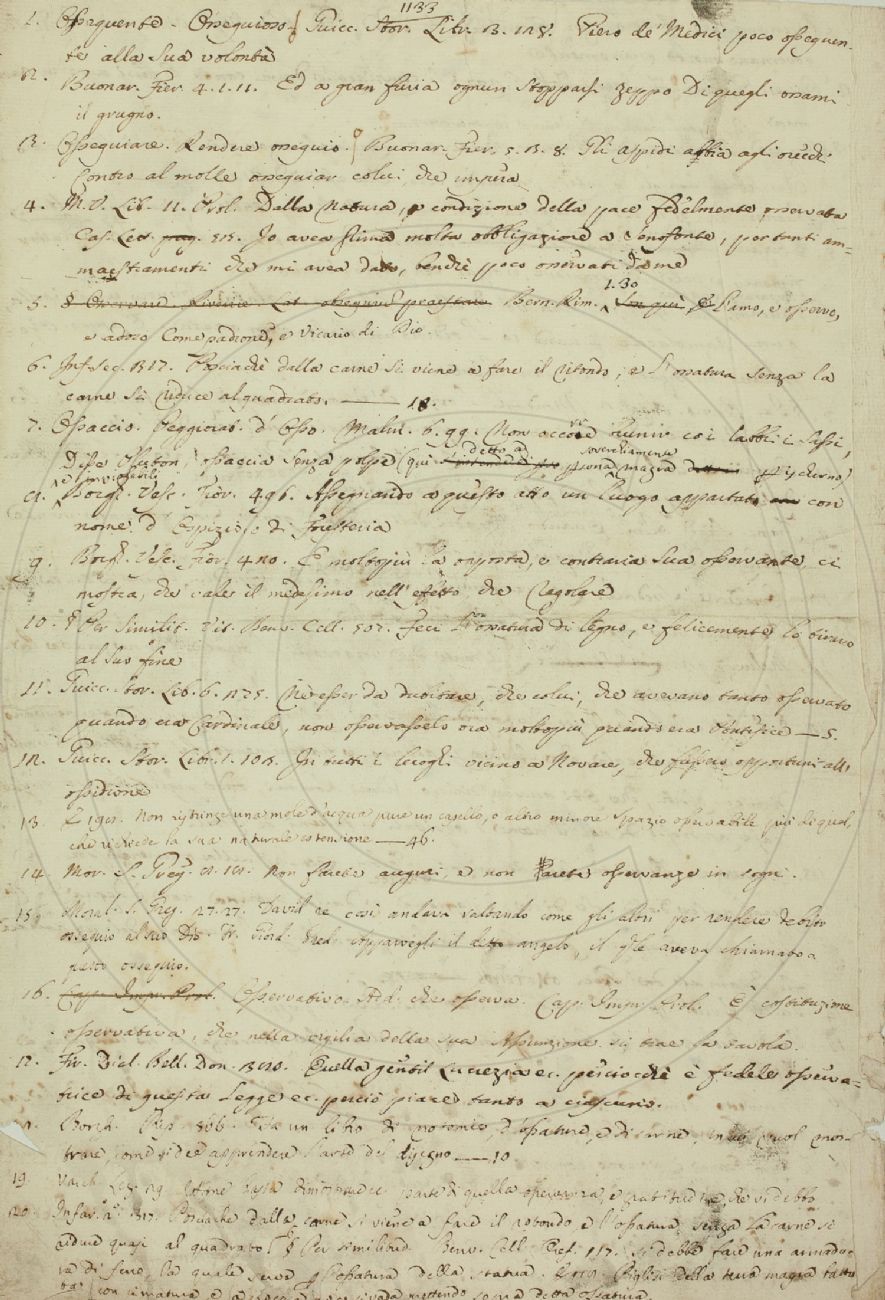 1133
1. Ossequente - Ossequioso. Guicc. Stor. Libr. 13. 128. Piero de' Medici poco ossequen-
te alla sua volontà
2. Buonar. Fier. 4. 1. 11. Ed a gran furia ognun stopparsi zeppo Di quegli ossami
il grugno.
3. Ossequiare. Rendere ossequio. Buonar. Fier. 5. 3. 8. Gli aspidi abbia agli orecchi
Contro al molle ossequiar colui che impera
4. M. V. Lib. 11. Prol. Dalla natura, e condizione della pace fedelmente osservata
Cas. Lett. pag. 515. Io avea prima molta obbligazione a Senofonte, per tanti am-
maestramenti che mi avea dato, benchè poco osservati da me
5. Bern. Rim. 1. 30 L'amo, e osservo,
e adoro Come padrone, e Vicario di Dio.
6. Inf. Sec. 317. Posciachè dalla carne si viene a fare il ritondo, e l'ossatura senza la
carne si riduce al quadrato. —— 18.
7. Ossaccio. Peggiorat. d'Osso. Malm. 6. 99. Non occorre riunir co i labbri i sassi,
Disse Pluton, ossaccia senza polpe (qui detto ad persona sover͏chiamente magra per ischerno)
8. Borgh. Vesc. Fior. 496. Assegnando a questo atto un luogo appartato con
nome d'Ospizio, o di Foresteria
9. Borgh. Vesc. Fior. 420. E molto più la opposta, e contraria sua osservante ci
mostra, che vales il medesimo nell'effetto che Regolare
10. § Per Similit. Vit. Benv. Cell. 507. Feci l'ossatura di legno, e felicemente la tiravo
al suo fine
11. Guicc. Stor. Lib. 6. 275. Nè esser da dubitare, che colui, che avevano tanto osservato
quando era Cardinale, non osservasselo ora molto più quando era Pontefice — 5.
12. Guicc. Stor. Libr. 1. 108. In tutti i luoghi vicino a Novara, che fussero opportuni all'
ossidione
13. Non ristringe una mole d'acqua pure un capello, o altro minore spazio osservabile più di quel,
che richiede la sua naturale estensione —— 46.
14. Mor. S. Greg. Non farete augurj, e non farete osservanze in sogni.
15. Moral. S. Greg. 27. 27. David re così andava saltando come gli altri per rendere debito
ossequio al suo Dio. Fr. Giord. Pred. Apparvegli il detto angelo, il q͏le aveva chiamato a
questo ossequio.
16. Osservativo. Add. che osserva. Capp. Impr. Prol. È costituzione
osservativa, che nella vigilia della sua Assunzione si trae la tavola.
17. Fir. Dial. Bell. Don. Quella gentil Lucrezia ec. perciocchè è fedele osserva-
trice di questa legge ec. perciò piace tanto a ciascuno.
Borgh. Rip. 866. Fia un libro di notomia d'ossature, e di carne, in cui vuol mos-
trare, come si dee apprendere l'arte del disegno —— 10
19. Varch. Lez. parte di quella osservanza, e gratitudine, che si debbe
20. Infar. 317. Posciachè dalla carne si viene a fare il rotondo e l'ossatura senza la carne si
riduce quasi al quadrato. § Per similitud. Benv. Cell. Oref. 117. Si debbe fare una armadu-
ra di ferro, la quale serve per l'ossatura della statua. Piglisi della terra magra fatta
sopra detta ossatura.